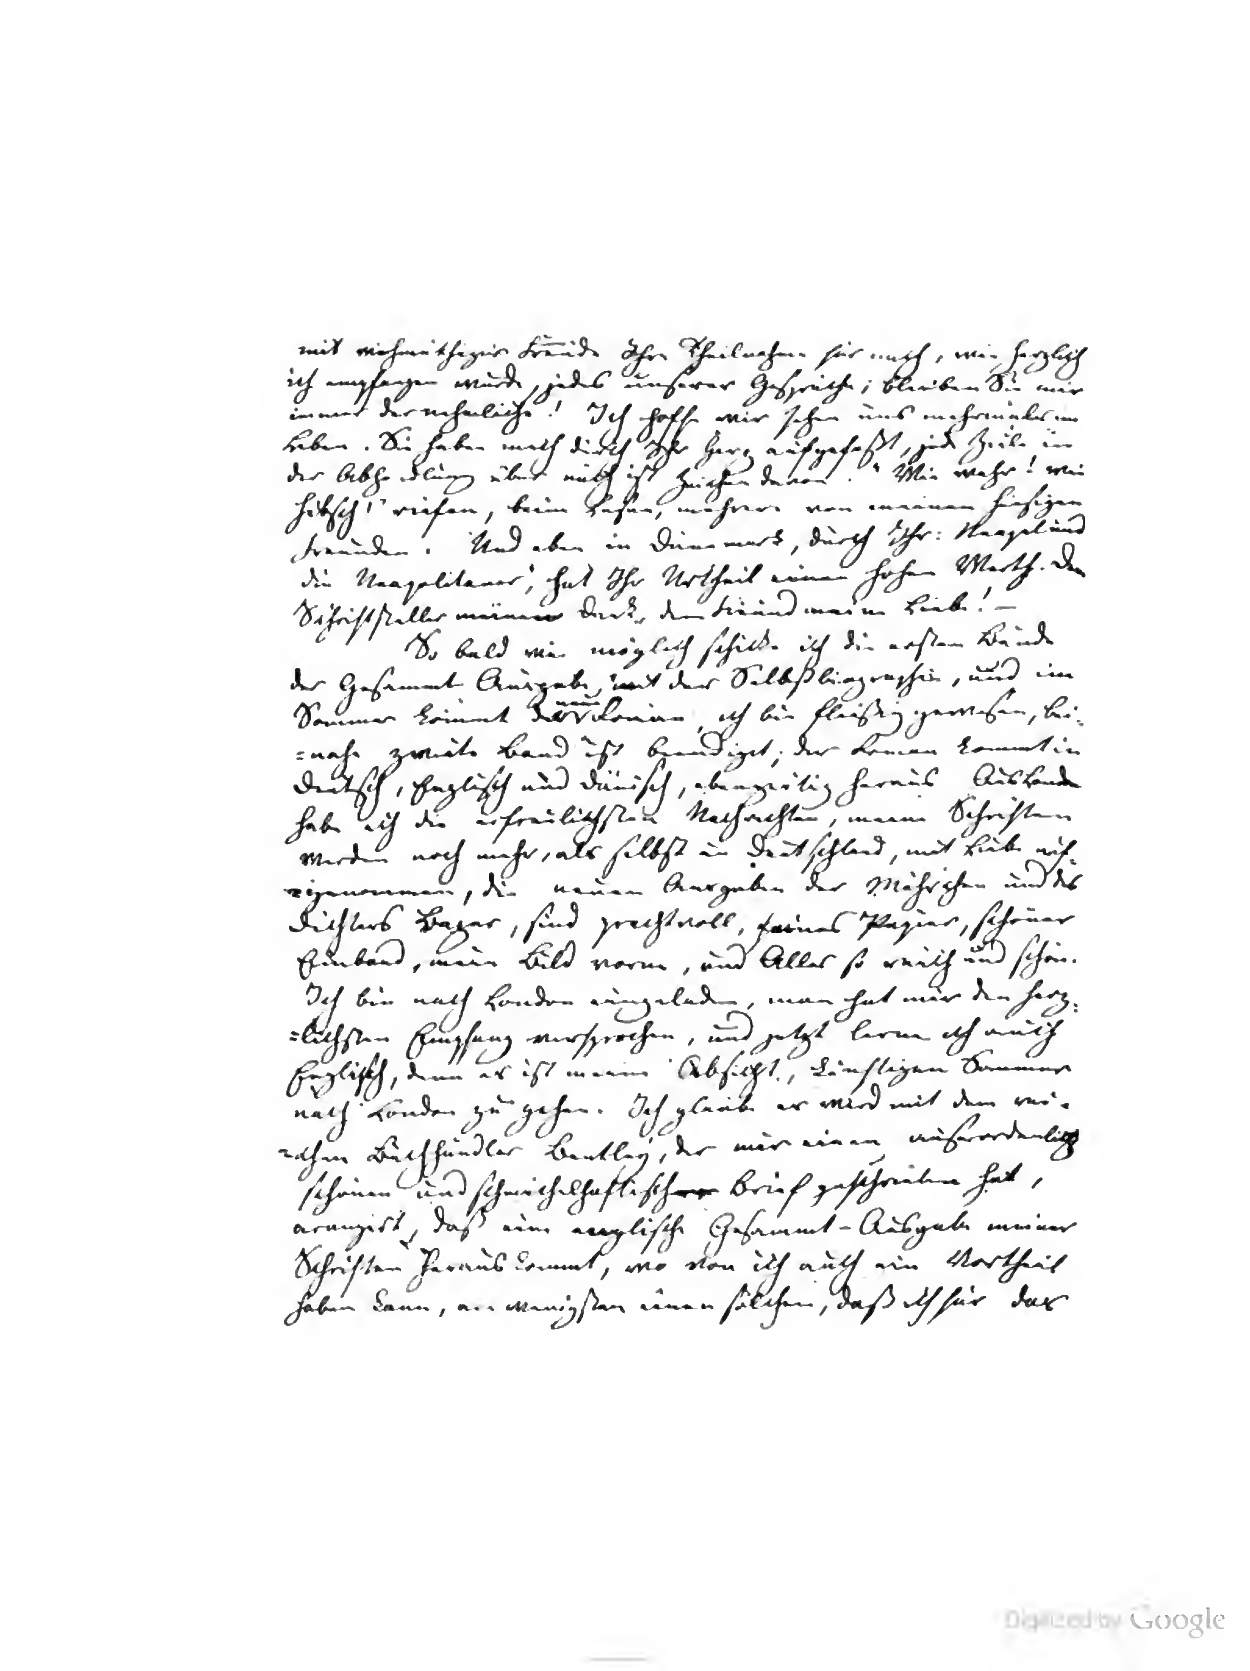 mit wehmüthiger Freude Ihre Theilnahme für mich, wie herzlich
ich empfangen wurde, jedes unserer Gespräche; bleiben Sie mir
immer derselbe! Ich hoffe wir sehen uns mehrmals im
Leben. Sie haben mich durch Ihr Herz aufgefaßt, jede Zeile in
der Abhandlung über mich ist Zeichen davon. "Wie wahr! wie
hübsch!" riefen, beim Lesen, mehrere von meinen hiesigen
Freunden. Und eben in Dännemark, durch Ihr: Neapel und
die Neapolitaner", hat Ihr Urtheil einen hohen Werth. Dem
Schriftsteller meinen Dank, dem Freund meine Liebe! –
So bald wie möglich schicke ich die ersten Bände
der Gesammt Ausgabe, mit der Selbstbiographie, und im
Sommer kömmt der neue Roman, ich bin fleißig gewesen, bei-
=nahe zweite Band ist beendiget; der Roman kommt in
Deutsch, Englisch und Dänisch, ebenzeitig heraus Aus London
habe ich die erfreulichsten Nachrichten, meine Schriften
werden noch mehr, als selbst in Deutschland, mit Liebe auf-
genommen, die neuen Ausgaben der Mährchen und des
Dichters Bazar, sind prachtvoll, feines Papier, schöner
Einband, mein Bild vorne, und Alles so reich und schön.
Ich bin nach London eingeladen, man hat mir den herz-
=lichsten Empfang versprochen, und jetzt lerne ich auch
Englisch, denn es ist meine Absicht, künftigen Sommer
nach London zu gehen. Ich glaube es wird mit dem rei-
=chen Buchhändler Bentley, der mir einen auserordenlich
schönen und schmeichelhaftisch Brief geschrieben hat,
arangirt, daß eine englische Gesammt-Ausgabe meiner
Schriften heraus kommt, wo von ich auch ein Vortheil
haben kann, am wenigsten einen solchen, daß ich für das
Digitized by Google